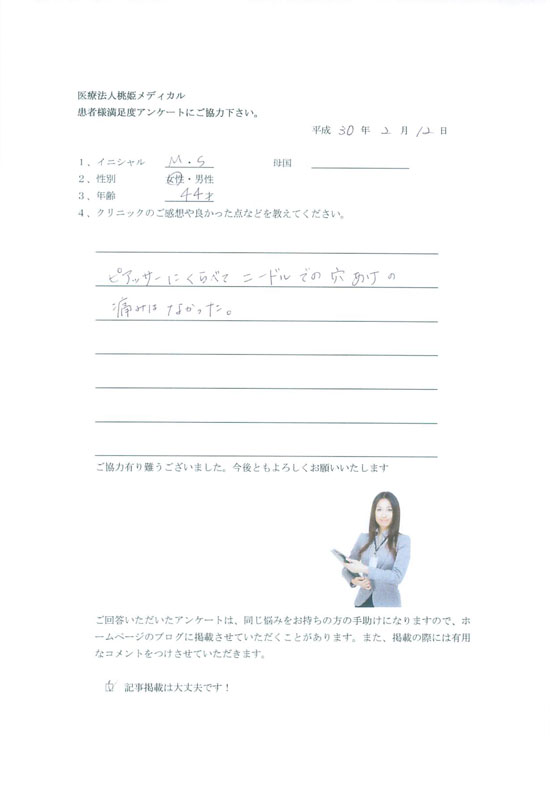 医療法人桃姫メディカル
患者様満足度アンケートにご協力下さい。
平成 30 年 2 月 12 日
1、イニシャル M・S 母国
2、性別 女性・男性
3、年齢 44才
4、クリニックのご感想や良かった点などを教えてください。
ピアッサーにくらべて ニードルでの穴あけの
痛みはなかった。
ご協力有り難うございました。今後ともよろしくお願いいたします
ご回答いただいたアンケートは、同じ悩みをお持ちの方の手助けになりますので、ホ
ームページのブログに掲載させていただくことがあります。また、掲載の際には有用
なコメントをつけさせていただきます。
記事掲載は大丈夫です！